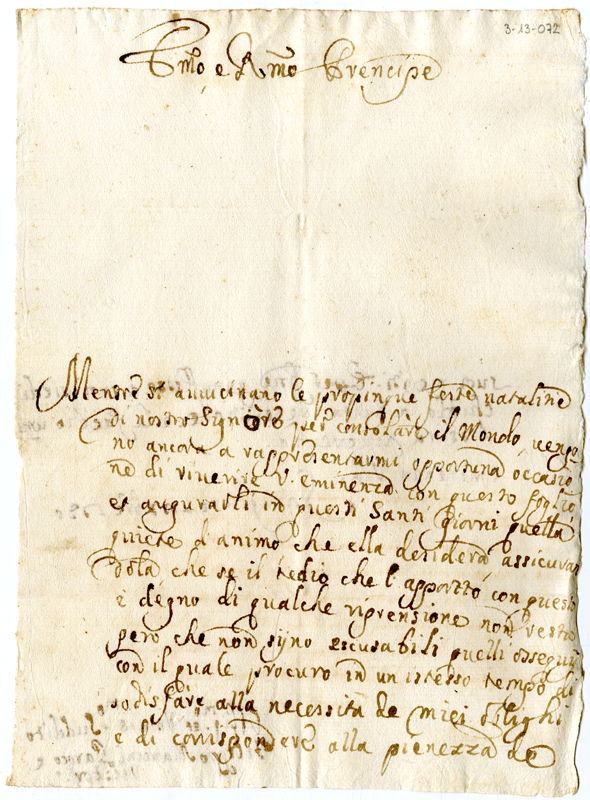 3-13-072
Emo e Rmo Prencipe
Mentre si auuicinano le propinque feste nataline
di nostro Signore per consolare il Mondo, uengo
no ancora a rappresentarmi opportuna occasio
ne di riuerire V. eminenza con questo foglio
et augurarli in questi Santi giorni quella
quiete d'animo che ella desidera, assicuran
dola che se il tedio che l'apporto con questo
è degno di qualche riprensione non resto
però che non sijno escusabili quelli ossequij
con il quale procuro in un istesso tempo di
sodisfare alla necessità de miei oblighi
e di corrispondere alla pienezza de